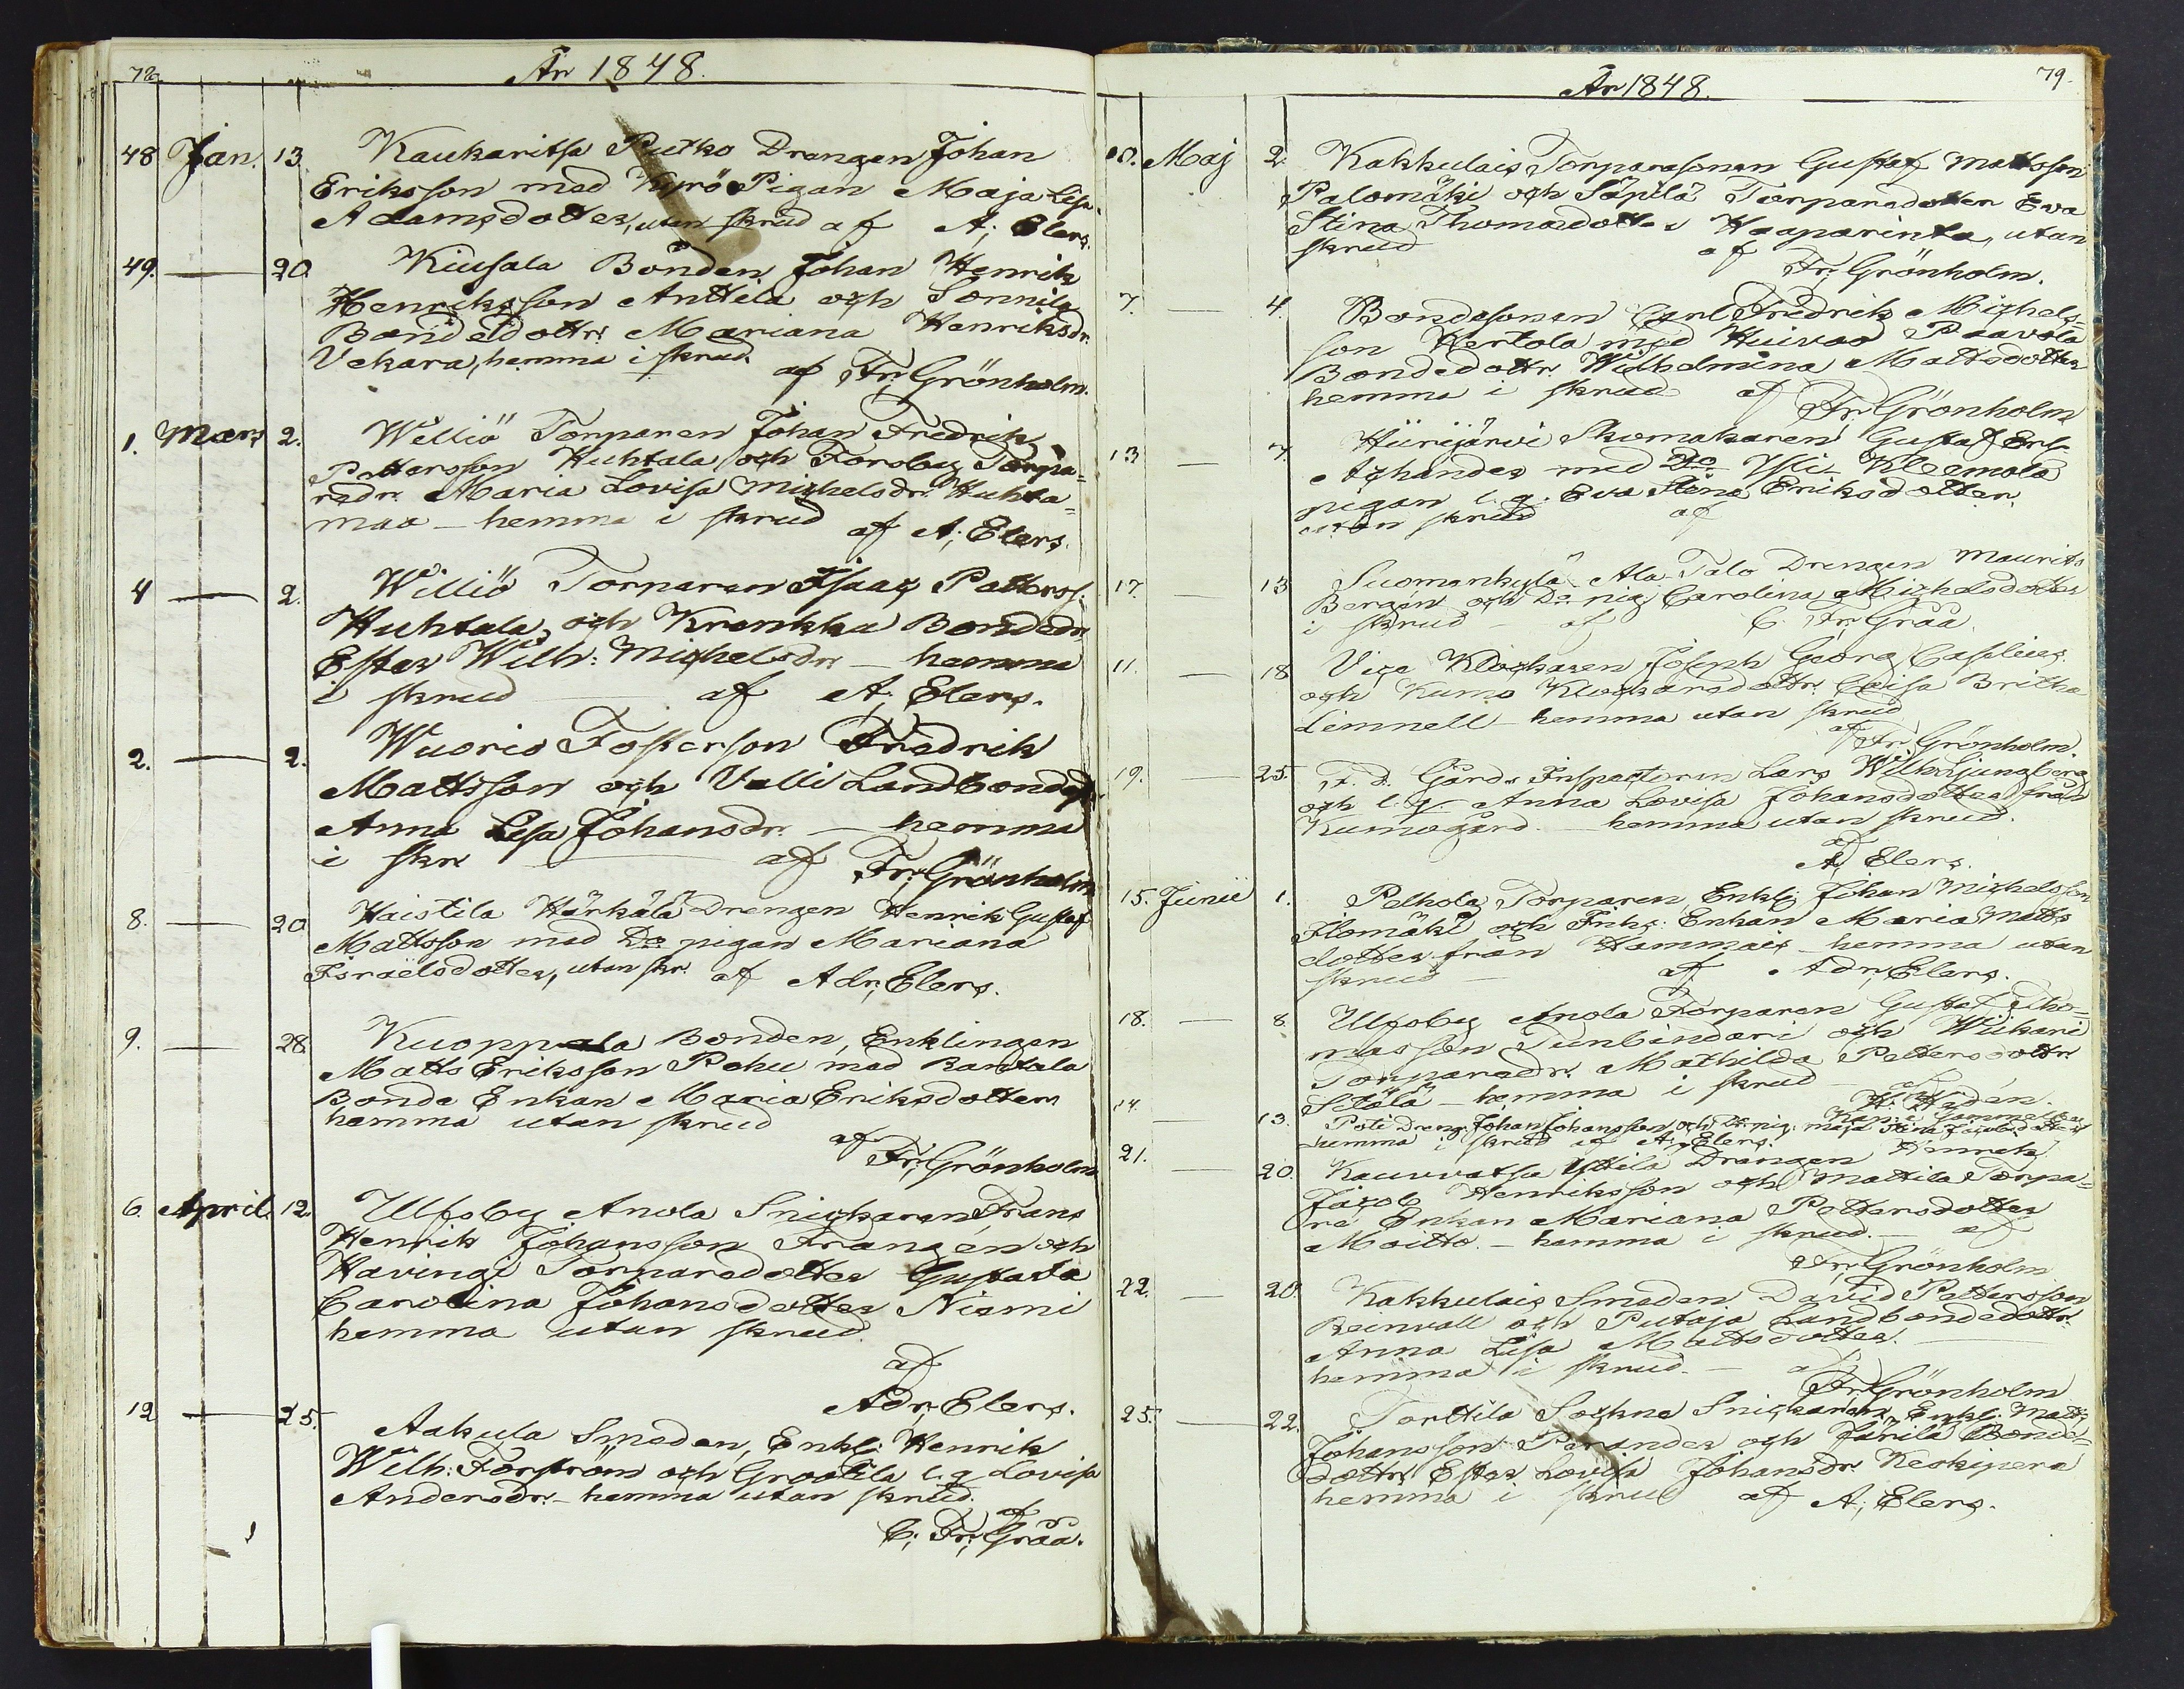 78.
År 1848.
48 Jan. 13. Kaukaritsa Putko Drengen Johan
Eriksson med Kyrö Pigan Maja Lisa
Adamsdotter, utan skrud af A; Elers.
49. — 20 Kiusala Bonden Johan Henrik
Henriksson Anttila och Sonnila
Bondedottr. Mariana Henriksdr.
Vekara, hemma i skrud.
af Fr; Grönholm.
1. Mars 2. Williö Torparen Johan Fredrik
Pettersson Huhtala och Forsby Torpa=
redr. Maria Lovisa Michelsdr. Huhta=
maa — hemma i skrud af A; Elers.
4 — 2. Williö Torparen Isaac Petterss.
Huhtala och Krankka Bondedr.
Ester Wilh: Michelsdr — hemma
i skrud — af A; Elers.
2. — 2. Wuorio Fosterson Fredrik
Mattsson och Valli Landbonded.
Anna Lisa Johansdr. — hemma
i skr — af Fr; Grönholm
8. — 20 Haistila Härkälä Drengen Henrik Gustaf
Mattsson med Do pigan Mariana
Israelsdotter, utan skr. af Adr; Elers.
9. — 28. Kuoppala Bonden, Enklingen
Matts Eriksson Rohu med Rantala
Bonde Enkan Maria Eriksdotter
hemma utan skrud
af
Fr; Grönholm
6. April. 12. Ulfsby Anola Snickaren Frans
Henrik Johansson Frangén och
Havinge Torparedotter Gustava
Carolina Johansdotter Niemi
hemma utan skrud.
af
Adr; Elers.
12 — 25. Aakula Smeden, Enkl: Henrik
Wilh: Forström och Grootila l. q. Lovisa
Andersdr. — hemma utan skrud.
af
C; Fr; Gråå.
År 1848.
79.
10. Maj 2. Kakkulais Torparesonen Gustaf Mattsson
Palomäki och Säpilä Torparedotter Eva
Stina Thomasdotter Haaparinta, utan
skrud af
Fr; Grönholm.
7. — 4. Bondesonen Carl Fredrik Michels=
son Hertola med Huivoo Paavola
Bondedottr. Wilhelmina Mattsdotter
hemma i skrud af
Fr; Grönholm
13 — 7. Hiirijärvi Skomakaren Gustaf Er:
Achander med Do Yli-Kleemola
pigan l. q. Eva Stina Eriksdotter,
utan skrud af
17. — 13 Suomenkylä Ala-Talo Drengen Maurits
Bergén och Do pig. Carolina Michelsdotter
i skrud — af C. Fr; Gråå.
11. — 18 Klockaren Joseph Georg
och Kumo Klockaredottr. Lovisa Britha
Limnell — hemma utan skrud
af
Fr; Grönholm.
19. — 25. F. d. Gårds Inspectoren Lars Wilh: Ljungberg
och l. q. Anna Lovisa Johansdotter från
Kumogård. — hemma utan skrud.
af
A; Elers.
15. Junii 1. Pelhola Torparen, Enkl; Johan Michelsson
Ilomäki och Inhs: Enkan Maria Matts
dotter från Hammais — hemma utan
skrud — af Adr; Elers.
18. — 8. Ulfsby Anola Torparen Gustaf Tho=
masson Tunbindari och Wiikari
Torparedr. Mathilda Pettersdottr.
Sitölä — hemma i skrud — af
H: Hedén.
14. — 13. Poti Dreng. Johan Johansson och Do pig: Maja Stina Jacobsdotter
hemma i skrud af A; Elers.
21. — 20. Kauvatsa Yttilä Drängen Henrik
Jacob Henriksson och Mattila Torpa=
re Enkan Mariana Pettersdotter
Moitto. — hemma i skrud. — af
Fr; Grönholm
22. — 20. Kakkulais Smeden David Pettersson
Renvall och Putaja Landbondedottr.
Anna Lisa Mattsdotter. —
hemma i skrud. — af
Fr; Grönholm
25. — 22. Torttila Sockne Snickaren, Enkl: Matts
Johansson Terander och Järilä Bonde=
dottr. Ester Lovisa Johansdr. Keskipera
hemma i skrud af A; Elers.